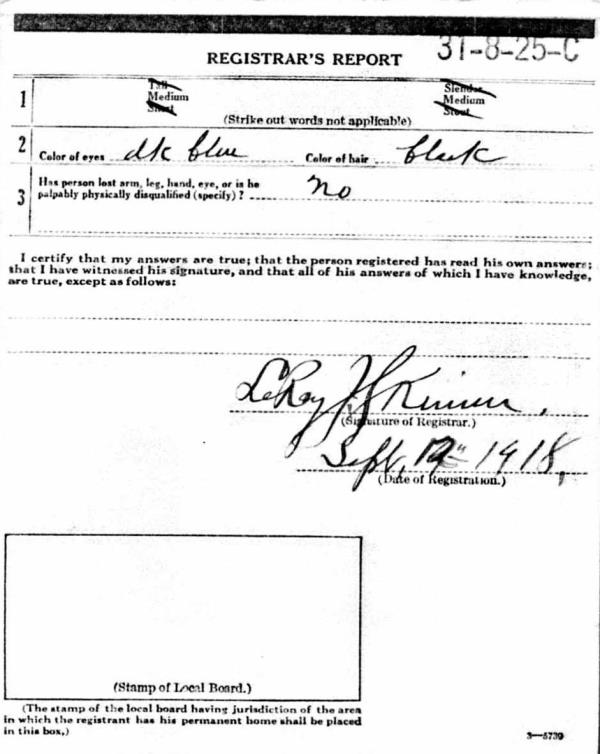 31-8-25-C
REGISTRAR'S REPORT
1
Tall
Medium
Short
Slender
Medium
Stout
(Strike out words not applicable)
2 Color of eyes dk blue Color of hair black
3 Has person lost arm, leg, hand, eye, or is he
palpably physically disqualified (specify)? no
I certify that my answers are true; that the person registered has read his own answers;
that I have witnessed his signature, and that all of his answers of which I have knowledge,
are true, except as follows:
LeRoy
(Signature of Registrar.)
Sept. 12" 1918,
(Date of Registration.)
(Stamp of Local Board.)
(The stamp of the local board having jurisdiction of the area
in which the registrant has his permanent home shall be placed
in this box.)
3—5739